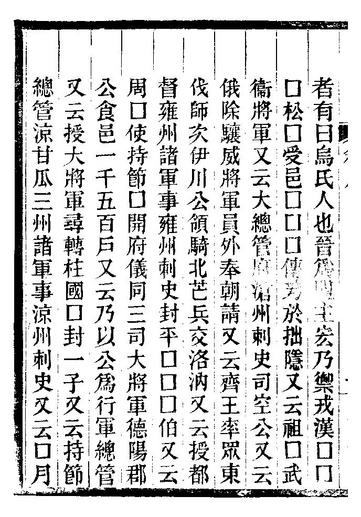 者有曰烏氏人也晉爲盟主宏乃禦戎漢囗囗
囗松囗愛邑囗囗囗傳芳於拙隱又云祖囗武
衞將軍又云大總管府滄州刺史司空公又云
俄除驤威將軍員外奉朝請又云齊王率眾東
伐師次伊川公領騎北芒兵交洛汭又云授都
督雍州諸軍事雍州刺史封平囗囗囗伯又云
周囗使持節囗開府儀同三司大將軍德陽郡
公食邑一千五百戶又云乃以公爲行軍總管
又云授大將軍尋轉柱國囗封一子又云持節
總管涼甘瓜三州諸軍事涼州刺史又云囗月